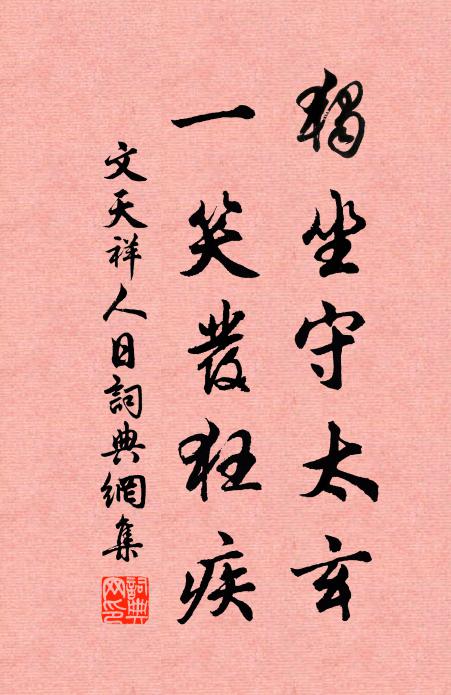 獨坐守太玄
一笑發狂疾
文天祥人日詞典網集
詞典
网印